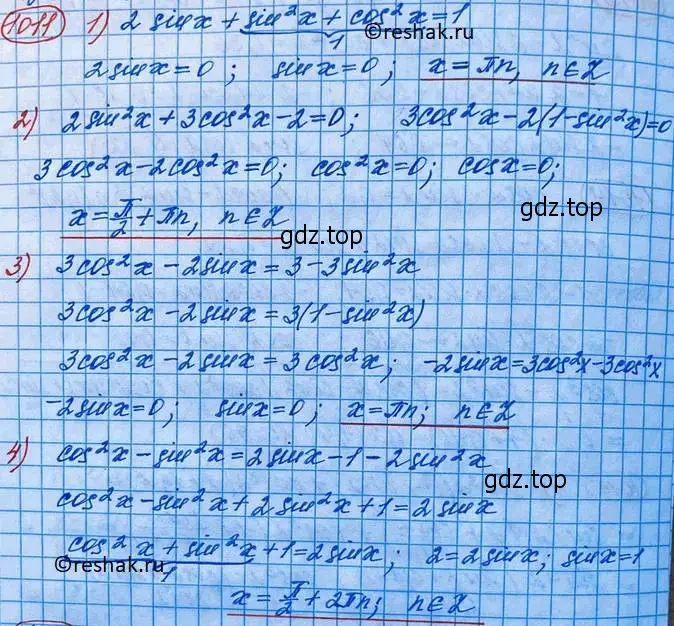 1011 1) 2 sinx + sin²x + cos²x = 1
1
©reshak.ru
2 sinx = 0; sinx = 0; x = πn, n∈Z
2) 2 sin²x + 3cos²x - 2 = 0; 3cos²x - 2(1-sin²x) = 0
3cos²x - 2cos²x = 0; cos²x = 0; cosx = 0;
x = π/2 + πn, n∈Z
gdz.top gdz.top
3) 3cos²x - 2sinx = 3 - 3sin²x
3cos²x - 2sinx = 3(1 - sin²x)
3cos²x - 2sinx = 3cos²x; -2sinx = 3cos²x - 3cos²x
-2sinx = 0; sinx = 0; x = πn; n∈Z
4) cos²x - sin²x = 2sinx - 1 - 2sin²x
gdz.top
cos²x - sin²x + 2sin²x + 1 = 2sinx
cos²x + sin²x + 1 = 2sinx; 2 = 2sinx; sinx = 1
©reshak.ru
1
x = π/2 + 2πn; n∈Z